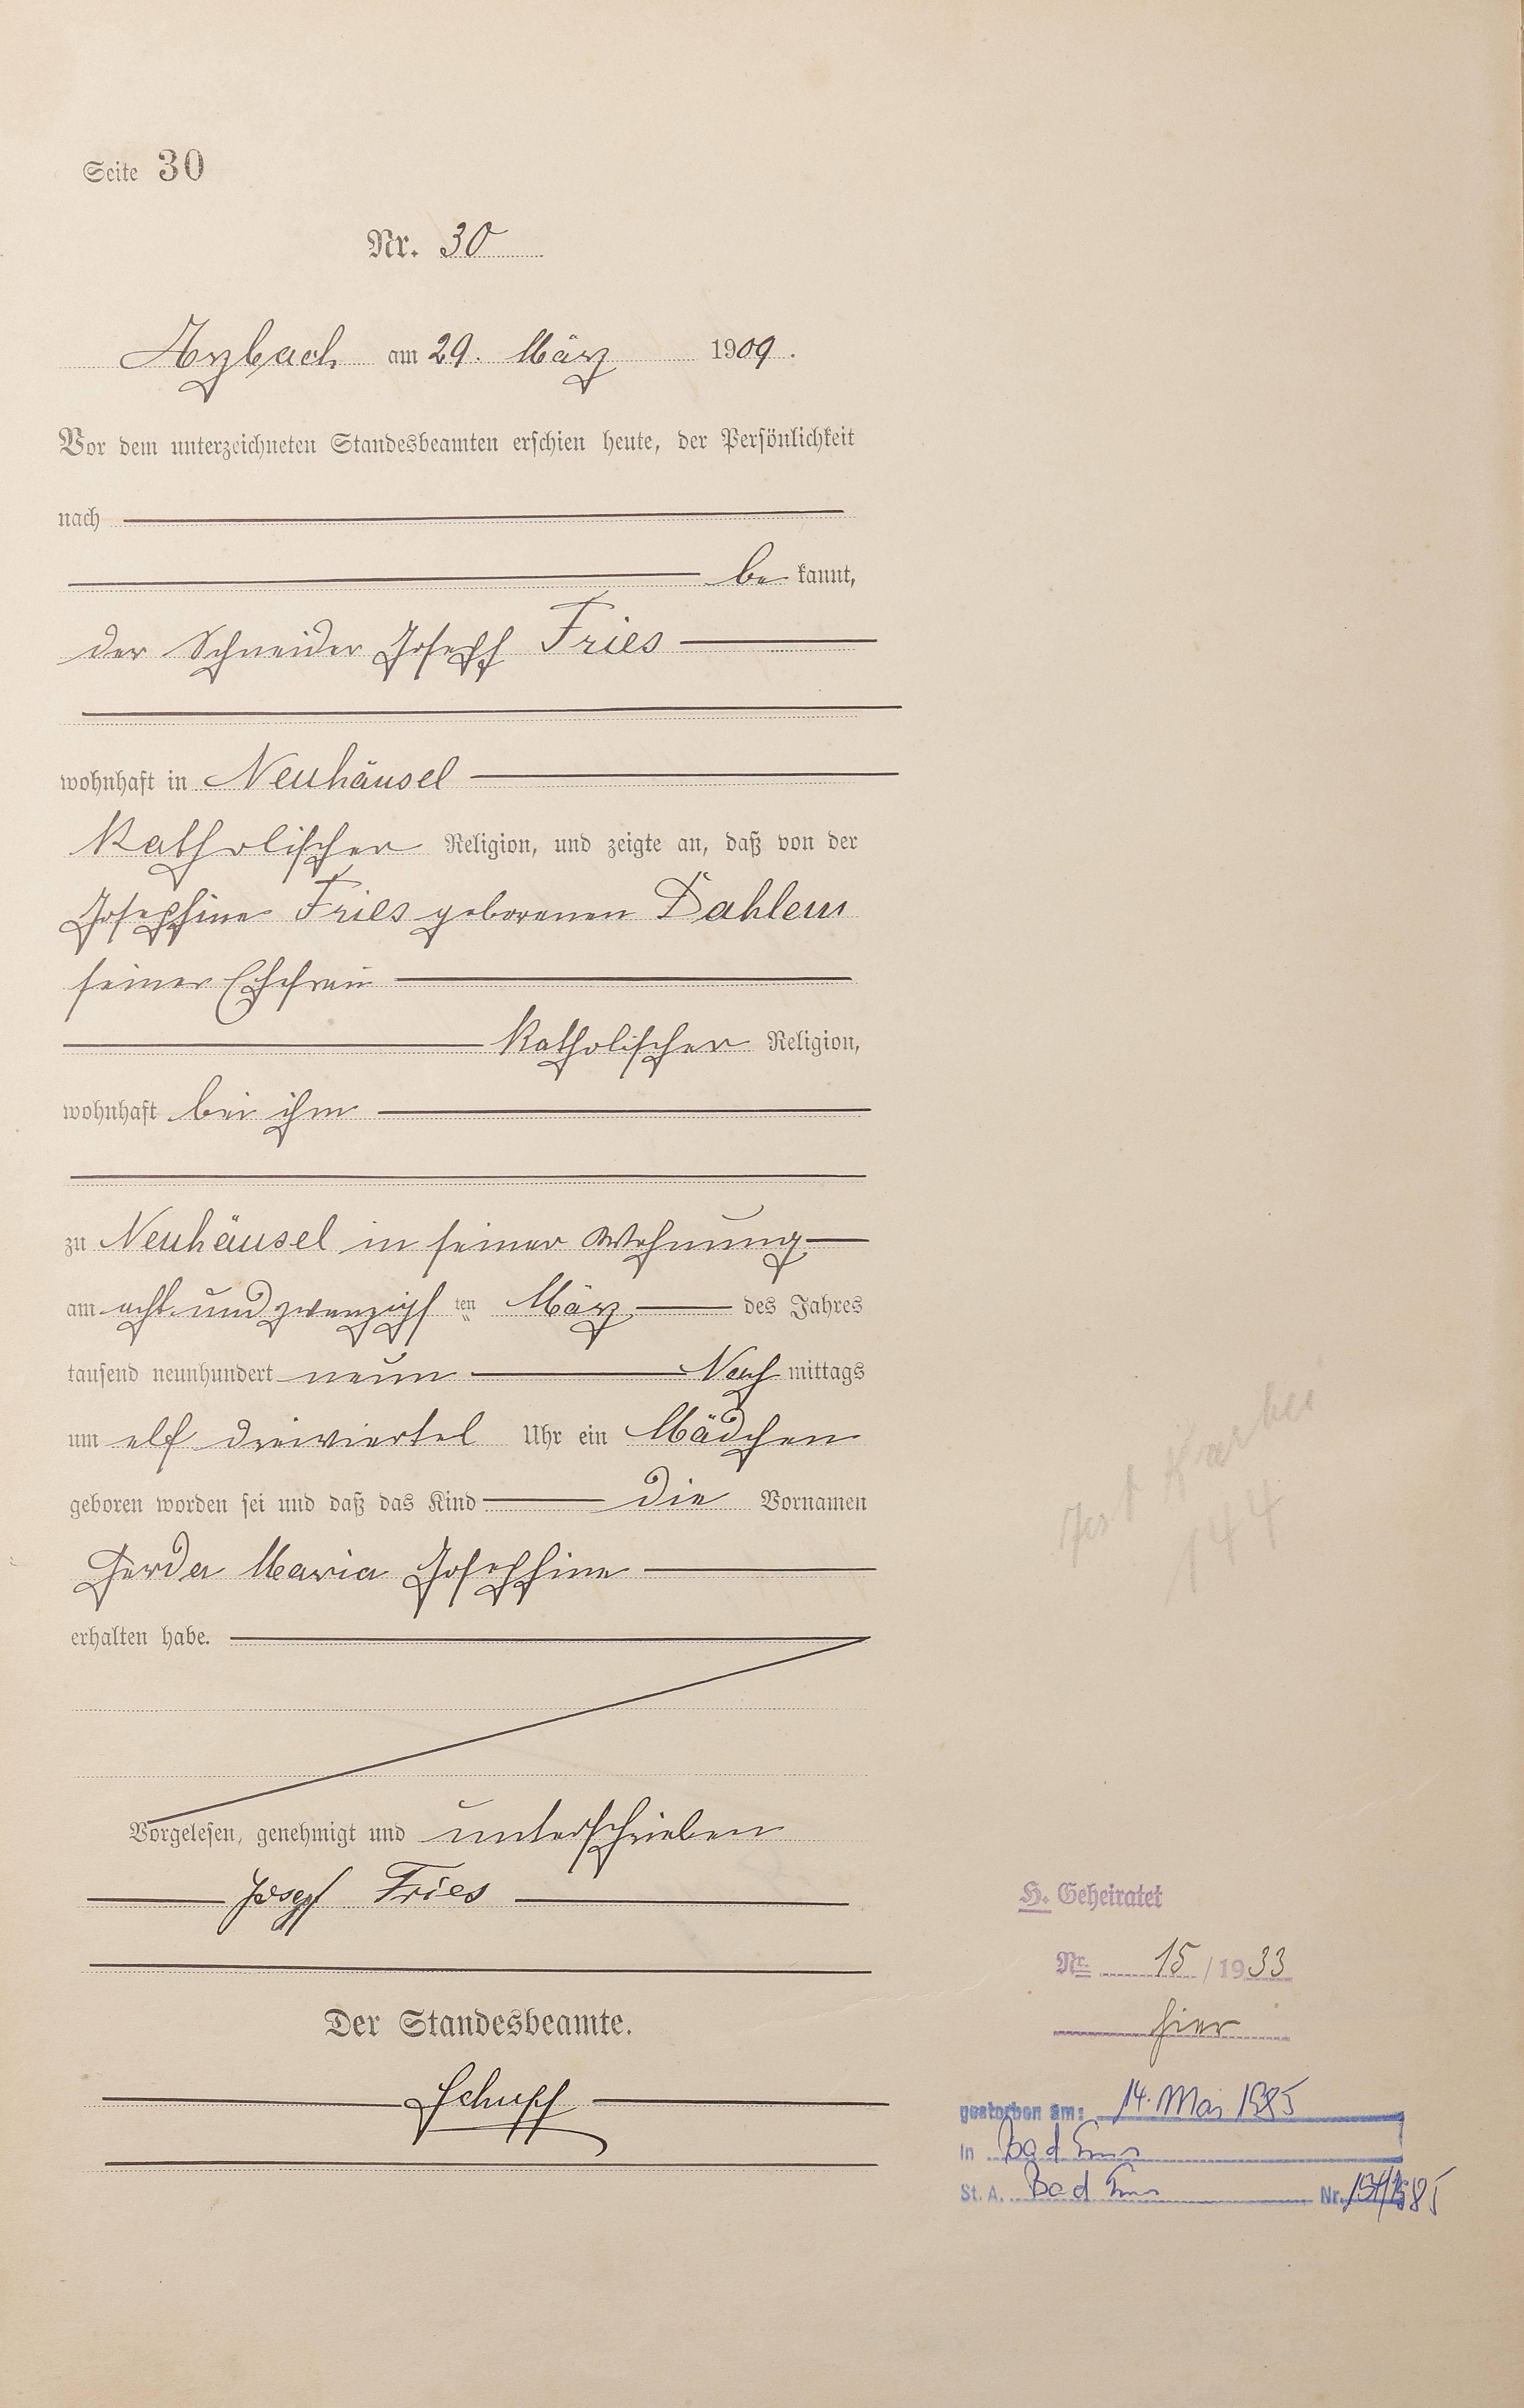 Seite 30
Nr. 30
Arzbach am 29. März 1909.
Vor dem unterzeichneten Standesbeamten erschien heute, der Persönlichkeit
nach
be kannt,
der Schneider Joseph Fries
wohnhaft in Neuhäusel
Katholischer Religion, und zeigte an, daß von der
Josephine Fries geborenen Dahlem
seiner Ehefrau
Katholischer Religion,
wohnhaft bei ihm
zu Neuhäusel in seiner Wohnung
am acht und zwanzigs ten März des Jahres
tausend neunhundert neun Nach mittags
um elf dreiviertel Uhr ein Mädchen
geboren worden sei und daß das Kind die Vornamen
Gerda Maria Josephine
erhalten habe.
Vorgelesen, genehmigt und unterschrieben
Josef Fries
Der Standesbeamte.
Schupp
144
H. Geheiratet
Nr. 15 / 1933
hier
gestorben am: 14. Mai 1985
in Bad Ems
St. A. Bad Ems Nr.